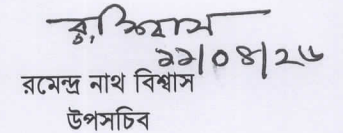 ২২|০৪|২৫
রমেন্দ্র নাথ বিশ্বাস
উপসচিব